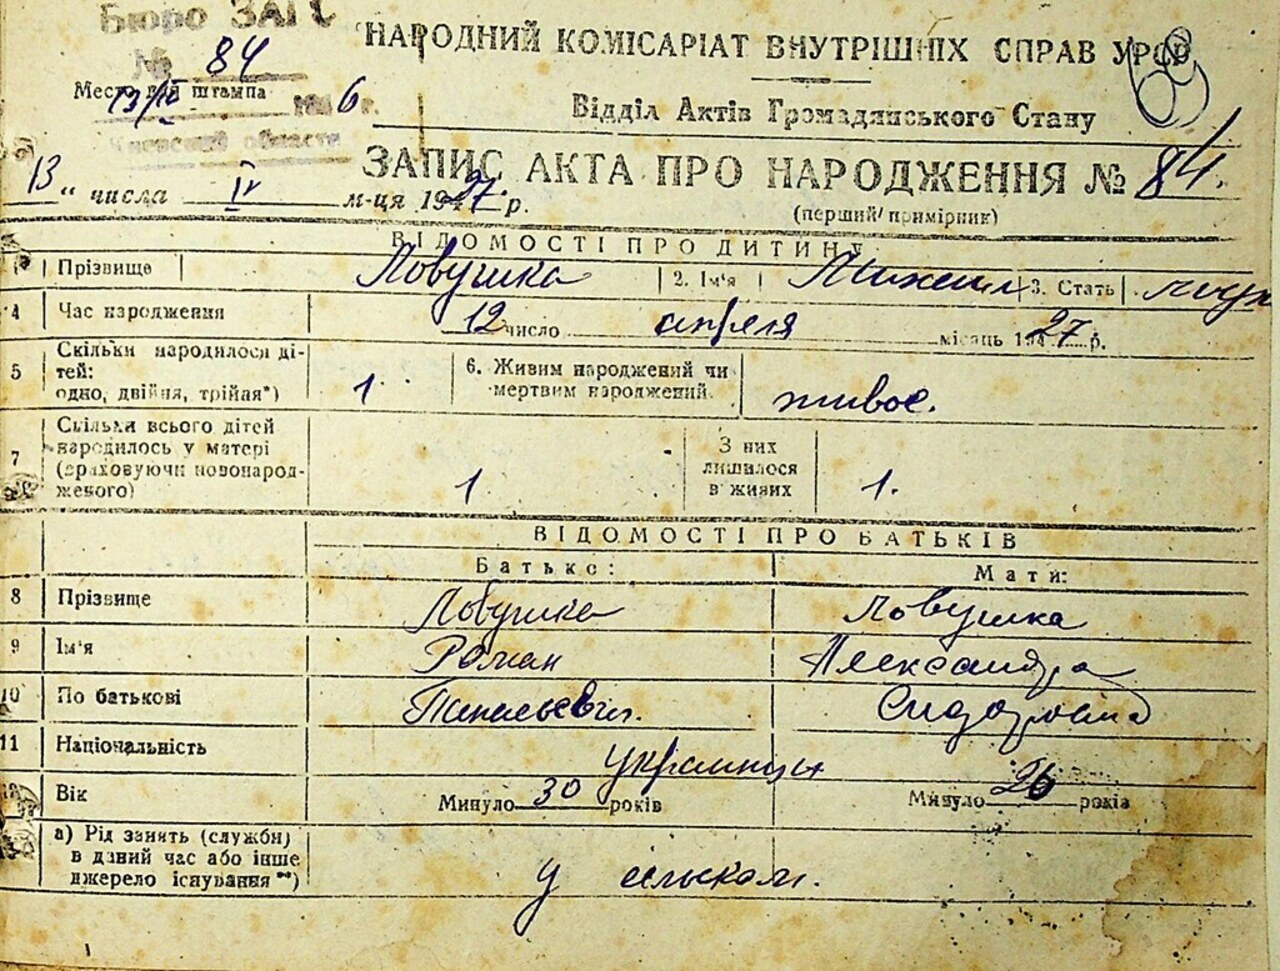 Бюро ЗАГС
№ 84
Место для штампа
13/IV 1946 г.
Киевской области
НАРОДНИЙ КОМІСАРІАТ ВНУТРІШНІХ СПРАВ УРСР
Відділ Актів Громадянського Стану
ЗАПИС АКТА ПРО НАРОДЖЕННЯ № 84.
13 " числа IV м-ця 1927 р.
(перший примірник)
ВІДОМОСТІ ПРО ДИТИНУ
1 Прізвище Ловушка 2. Ім'я Михаил 3. Стать муж
4 Час народження 12 число апреля місяць 1927 р.
5 Скільки народилося ді-
тей:
одно, двійня, трійня*) 1 6. Живим народжений чи
мертвим народжений. живое.
7 Скільки всього дітей
народилось у матері
(враховуючи новонарод-
женого) 1 З них
лишилося
в живих 1.
ВІДОМОСТІ ПРО БАТЬКІВ
Батько: Мати:
8 Прізвище Ловушка Ловушка
9 Ім'я Роман Александра
10 По батькові Сидоровна
11 Національність украинцы
Вік Минуло 30 років Минуло 26 років
а) Рід занять (служби)
в даний час або інше
джерело існування**) У